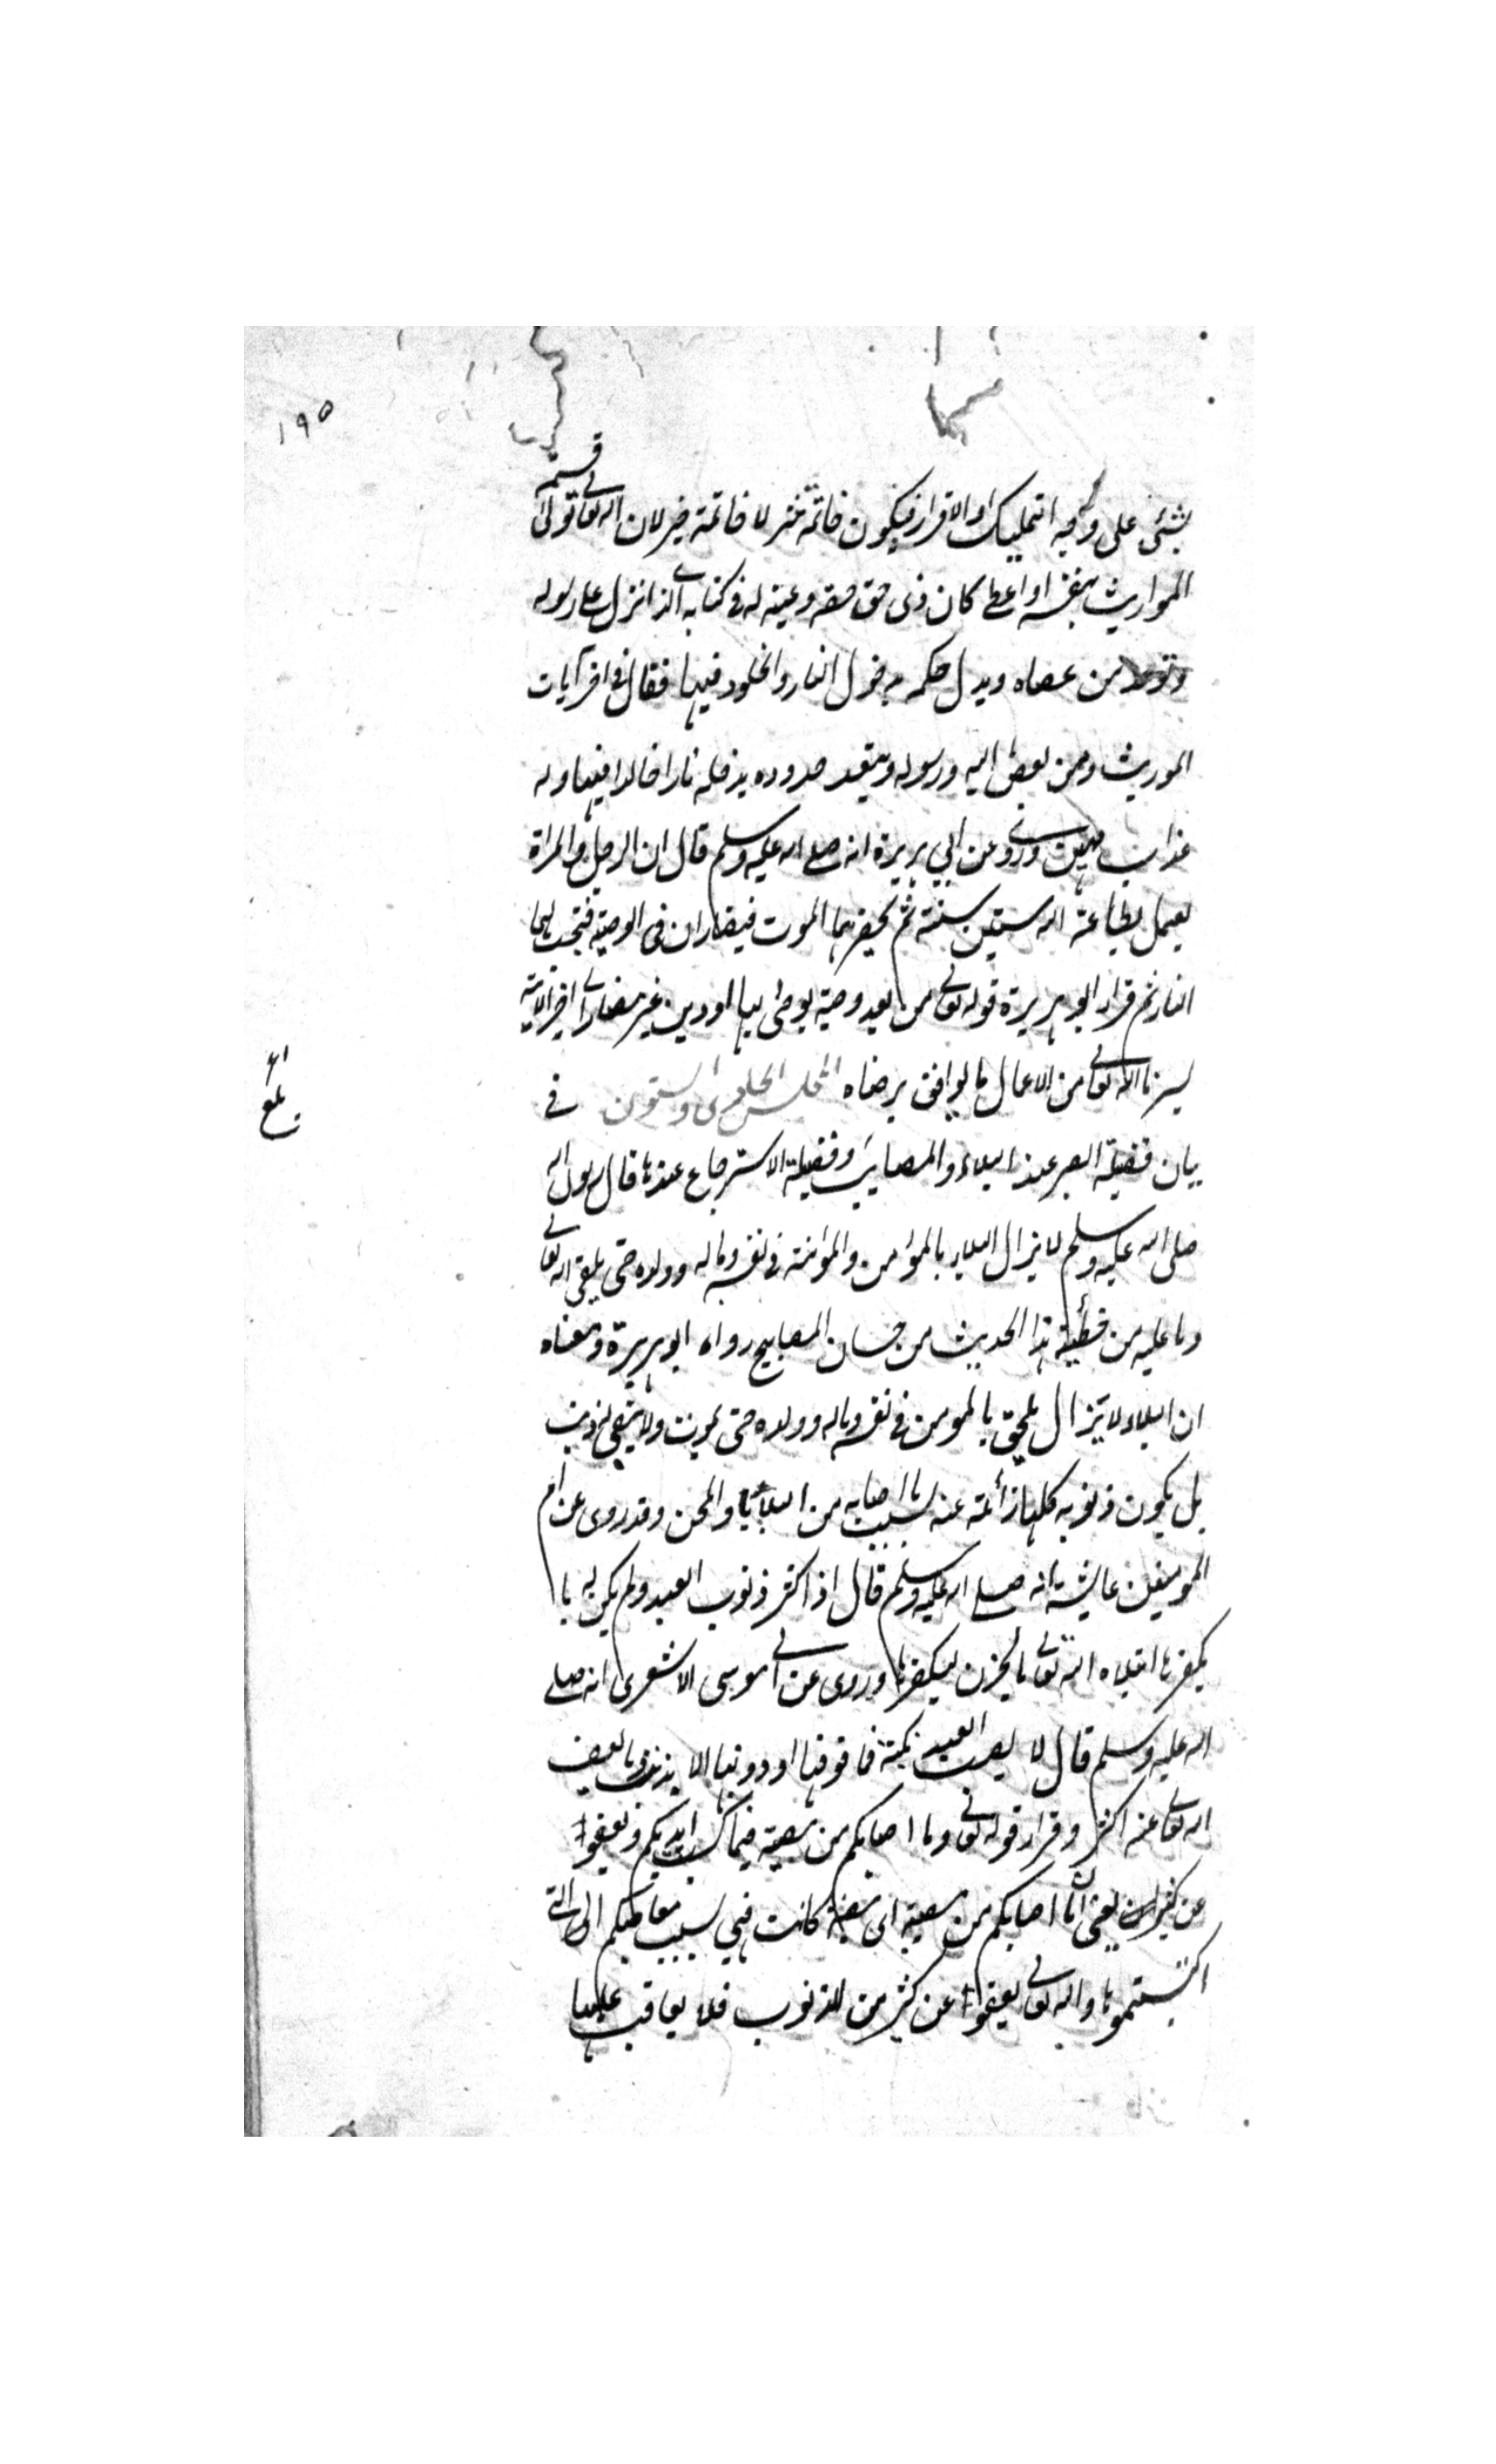 ١٩٥
بشئ على وجه التمليك او الاقرار فيكون خاتمة شر لا خاتمة خير لان الله تعالى تولى قسمة
المواريث بنفسه او اعطى كان ذى حق حقه وعينه له فى كتابه الذى انزل على رسوله
وتوعد من عصاه وبدل حكمه بدخول النار والخلود فيها فقال فى اخر آيات
الموريث ومن يعص الله ورسوله ويتعد حدوده يدخله نارا خالدا فيها وله
عذاب مهين وروى عن ابي هريرة انه صلى الله عليه وسلم قال ان الرجل والمراة
يعمل بطاعة الله ستين سنة ثم يحضرهما الموت فيضاران فى الوصية فتجب لهما
النار ثم قرا ابو هريرة قوله تعالى من بعد وصية يوصى بها او دين غير مضار الى اخر الاية
يسرنا الله تعالى من الاعمال ما يوافق برضاه المجلس الحادى والستون فى
بيان فضيلة الصبر عند البلاء والمصايب وفضيلة الاسترجاع عندها قال رسول الله
صلى الله عليه وسلم لا يزال البلاء بالمؤمن والمؤمنة فى نفسه وماله وولده حتى يلقى الله تعالى
وما عليه من خطيئة هذا الحديث من حسان المصابيح رواه ابو هريرة ومعناه
ان البلاء لا تزال يلحق بالمومن فى نفسه وماله وولده حتى يموت ولا يبقى له ذنب
بل يكون ذنوبه كلها زائمة عنه بسبب ما اصابه من البلايا والمحن وقد روى عن ام
المومنين عايشة انه صلى الله عليه وسلم قال اذا كثر ذنوب العبد ولم يكن له ما
يكفرها ابتلاه الله تعالى بالحزن ليكفرها وروى عن ابى موسى الاشعرى انه صلى
الله عليه وسلم قال لا يصيب العبد نكبة فما فوقها او دونها الا بذنب وما يعف
الله تعالى عنه اكثر وقرا قوله تعالى وما اصابكم من مصيبة فبما كسبت ايديكم ويعفوا
عن كثير يعنى ان ما اصابكم من مصيبة اى مصيبة كانت فهي بسبب معاصيكم التى
اكتسبتموها والله تعالى يعفوا عن كثير من الذنوب فلا يعاقب عليها